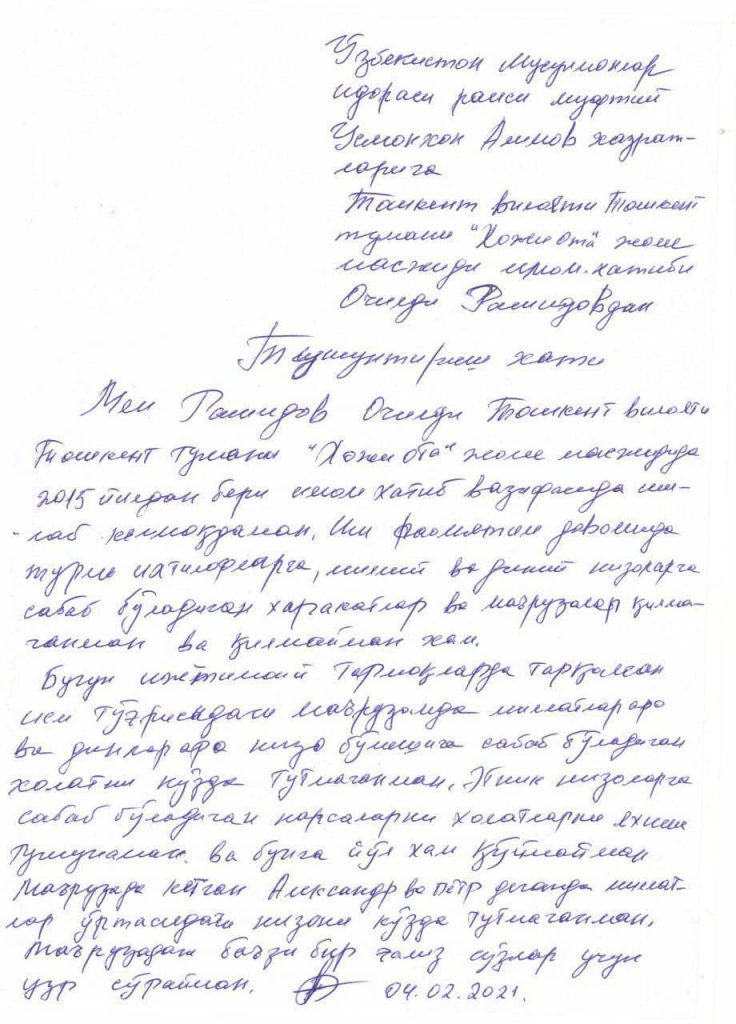 Ўзбекистон Мусулмонлар
идораси раиси муфтий
Усмонхон Алимов хазрат-
ларига
Тошкент вилояти Тошкент
тумани "Хожи ота" жоме
масжиди имом-хатиби
Очилди Рашидовдан
Тушунтириш хати
Мен Рашидов Очилди Тошкент вилояти
Тошкент тумани "Хожи ота" жоме масжидида
2015 йилдан бери имом хатиб вазифасида иш-
лаб келмоқдаман. Иш фаолиятим давомида
турли ихтилофларга, миллий ва диний низоларга
сабаб бўладиган харакатлар ва маърузалар қилма-
ганман ва қилмайман хам.
Бугун ижтимоий тармоқларда тарқалган
исм тўғрисидаги маърузамда миллатлараро
ва динлараро низо бўлишига сабаб бўладиган
холатни кўзда тутмаганман. Этник низоларга
сабаб бўладиган нарсаларни холатларни яхши
тушунаман. ва бунга йўл хам қўймайман
Маърузада кетган Александр ва Пётр деганда миллат-
лар ўртасидаги низони кўзда тутмаганман.
Маърузадаги баъзи бир ғализ сўзлар учун
узр сўрайман. 04.02.2021.